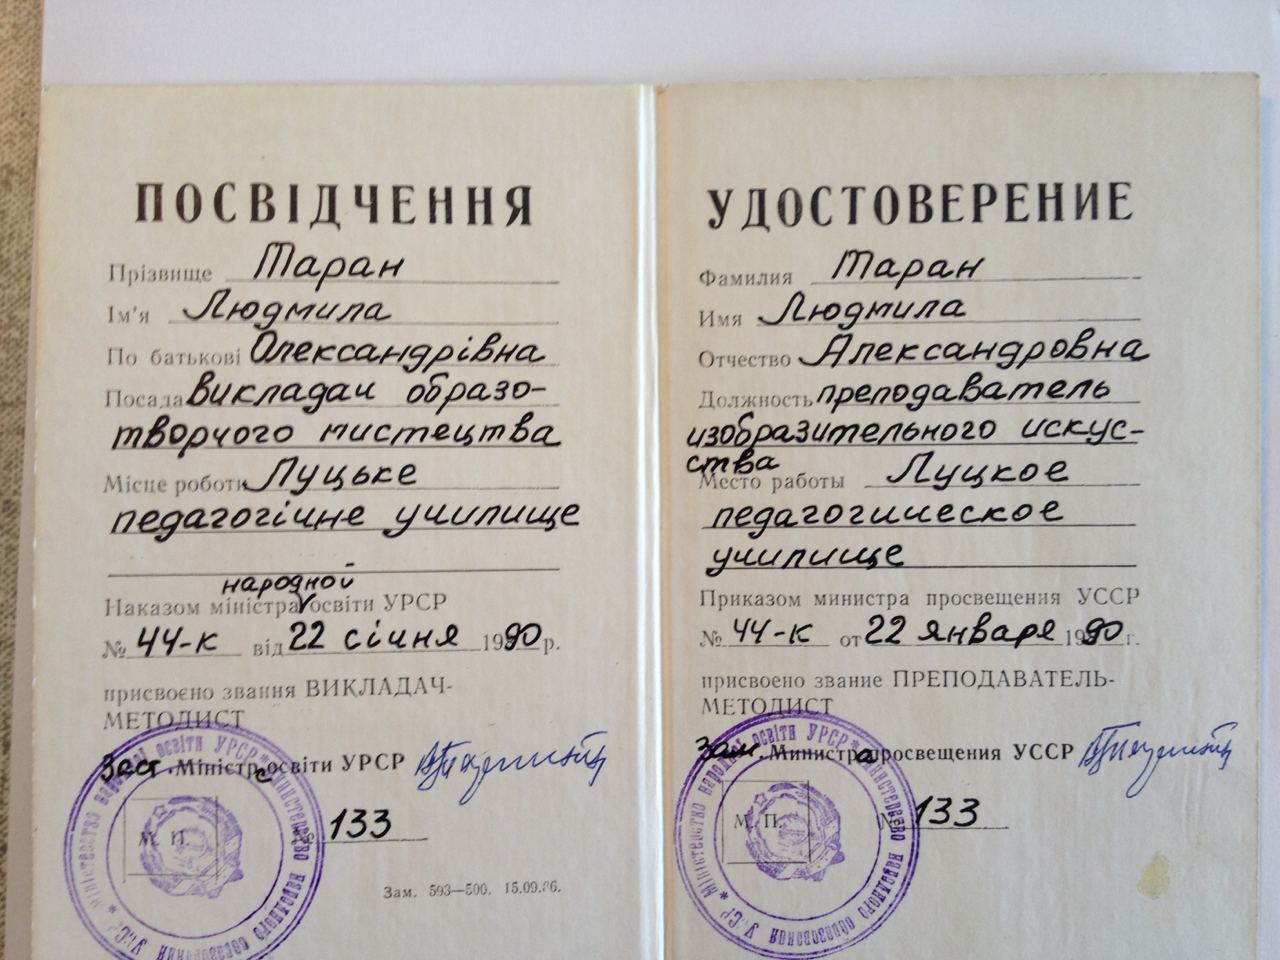 ПОСВІДЧЕННЯ
Прізвище Таран
Ім'я Людмила
По батькові Олександрівна
Посада викладач образо-
творчого мистецтва
Місце роботи Луцьке
педагогічне училище
народной
Наказом міністра освіти УРСР
№ 44-к від 22 січня 1990 р.
присвоєно звання ВИКЛАДАЧ-
МЕТОДИСТ
Заст. Міністр освіти УРСР
М. П. № 133
Зам. 593—500. 15.09.86.
УДОСТОВЕРЕНИЕ
Фамилия Таран
Имя Людмила
Отчество Александровна
Должность преподаватель
изобразительного искус-
ства
Место работы Луцкое
педагогическое
училище
Приказом министра просвещения УССР
№ 44-к от 22 января 1990 г.
присвоено звание ПРЕПОДАВАТЕЛЬ-
МЕТОДИСТ
Зам. Министра просвещения УССР
М. П. № 133